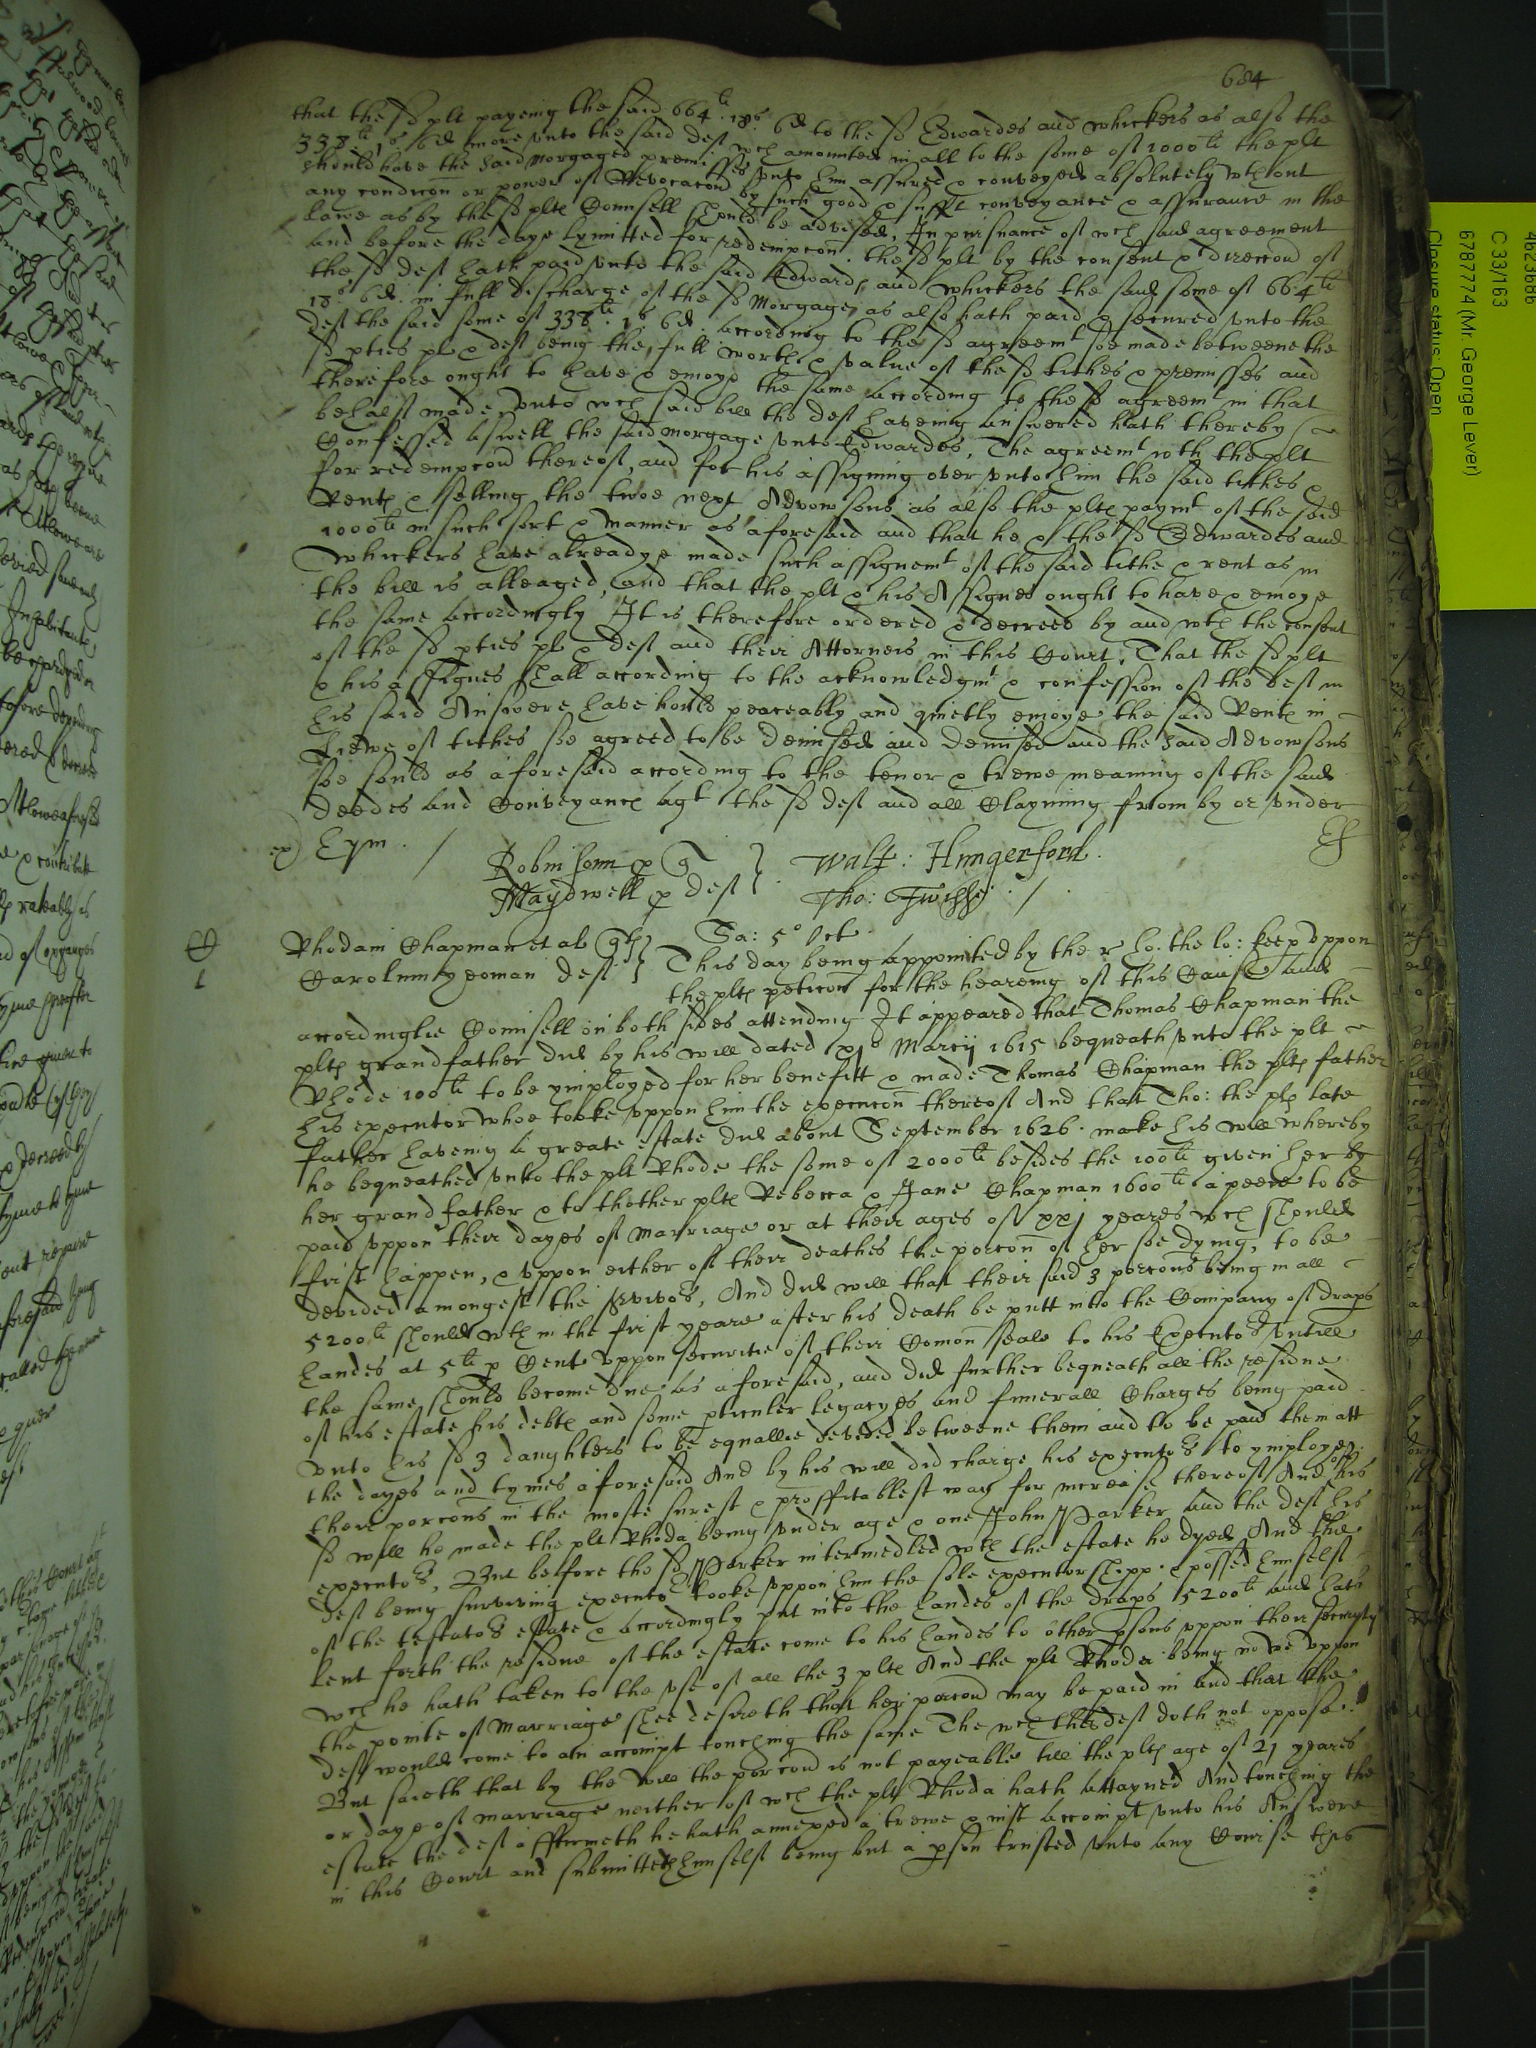 684
that the sd plt payeing the said 664li 18s 6d to the sd Edwardes and Whickers as also the
338li 1s 6d more unto the said deft wch amounted in all to the some of 1000li the plt
should have the said morgaged premisses unto him assured & conveyed absolutely wthout
any condicon or power of Revocacon by such good & sufft conveyance & assurance in the
lawe as by the sd plts Counsell should be advised, In pursuance of wch said agreement
and before the daye lymitted for redempcon the sd plt by the consent & direccon of
the sd deft hath paid unto the said Edwards and Whickers the said some of 664li
18s 6d in full discharge of the sd Morgage, as also hath paid & secured unto the
deft the said some of 338li 1s 6d according to the sd agreemt soe made betweene the
sd pties plt & deft being the full worth & value of the sd tithes & premisses and
therefore ought to have & enioye the same according to the sd agreemt in that
behalfe made, unto wch said bill the deft haveing answered hath thereby
Confessed aswell the said morgage unto Edwardes, The agreemt wth the plt
for redempcon thereof, and for his assigning over unto him the said tithes &
Rents & selling the twoe next Advowsons as also the plts paymt of the said
1000li in such sort & manner as aforesaid and that he & the sd Edwardes and
Whickers have alreadye made such assignemt of the said tithe & rent as in
the bill is alleaged, and that the plt & his Assignes ought to have & enioye
the same accordingly It is therefore ordered & decreed by and wth the consent
of the sd pties plt & deft and their Attorneis in this Court, That the sd plt
& his assignes shall according to the acknowledgmt & confession of the deft in
his said Answere have hould peaceably and quietly enioye the said Rents in
Liewe of tithes soe agreed to be demised and demised and the said Advowsons
soe sould as aforesaid according to the tenor & trewe meaning of the said
deedes and Conveyance agt the sd deft and all Clayming from by or under
ex) hym . /
Robinson p q } Walt: Hungerford
Maydwell p deft } Tho: Twisse . / .
Sa: 5o Oct
Rhodam Chapman et al qts }
Carolum yeoman deft } This day being appointed by the r ho. the lo: keep uppon
the plts peticon for the heareing of this Cause and
accordinglie Counsell on both sides attending It appeared that Thomas Chapman the
plts grandfather did by his will dated xjo Marcij 1615 bequeath unto the plt
Rhode 100li to be ymployed for her benefitt & made Thomas Chapman the plts father
his executor whoe tooke uppon him the execucon thereof And that Tho: the plts late
father haveing a greate estate did about September 1626 make his will whereby
he bequeathed unto the plt Rhode the some of 2000li besides the 100li given her by
her grandfather & to thother plts Rebecca & Jane Chapman 1600li a peece to be
paid uppon their dayes of Marriage or at their ages of xxj yeares wch should
first happen, & uppon either of their deathes the porcon of her soe dying, to be
devided amongest the survivors, And did will that their said 3 porcons being in all
5200li should wth in the first yeare after his death be putt into the Company of drapers
handes at 5li p Cent uppon securitie of their Comon seale to his Executors untill
the same should become due as aforesaid, and did further bequeath all the residue
of his estate his debts and some pticuler legacyes and funerall Charges being paid
unto his sd 3 daughters to be equallie devided betweene them and to be paid them att
the dayes and tymes aforesaid And by his will did charge his executors to ymploye
their porcons in the moste surest & proffitablest way for increase thereof And of his
sd will he made the plt Rhoda being under age & one John Parker and the deft his
executors, But before the sd Parker intermedled wth the estate he dyed And the
deft being surviving executor tooke uppon him the sole executorshipp & possed himselfe
of the testators estate & accordingly put into the handes of the drapers 5200li and hath
lent forth the residue of the estate come to his handes to other psons uppon their security
wch he hath taken to the use of all the 3 plts And the plt Rhoda being nowe uppon
the pointe of Marriage shee desireth that her porcon may be paid in and that the
deft would come to an accompt touching the same The wch the deft doth not oppose.
But saieth that by the will the porcon is not payeable till the plts age of 21 yeares
or daye of marriage neither of wch the plt Rhoda hath attayned And touching the
estate the deft affirmeth he hath annexed a trewe & iust accompt unto his Answere
in this Court and submitteth himselfe being but a pson trusted unto any Course this
4623686
C 33/163
6787774 (Mr. George Lever)
Closure status: Open